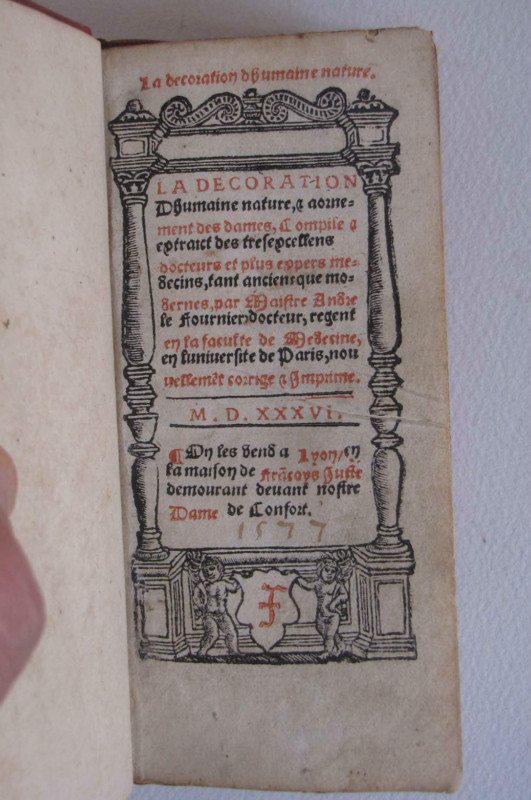 La decoration dhumaine nature.
LA DECORATION
Dhumaine nature, & aorne-
ment des dames, Compile &
extraict des tresexcellens
docteurs et plus expers me-
decins, tant anciens que mo-
dernes, par Maistre Andre
le Fournier, docteur, regent
en la faculte de Medecine,
en luniuersite de Paris, nou
uellemēt corrige & Imprime.
M. D. XXXVi.
¶ On les vend a Lyon, en
la maison de Frācoys Juste
demourant deuant nostre
Dame de Confort.
1577
F